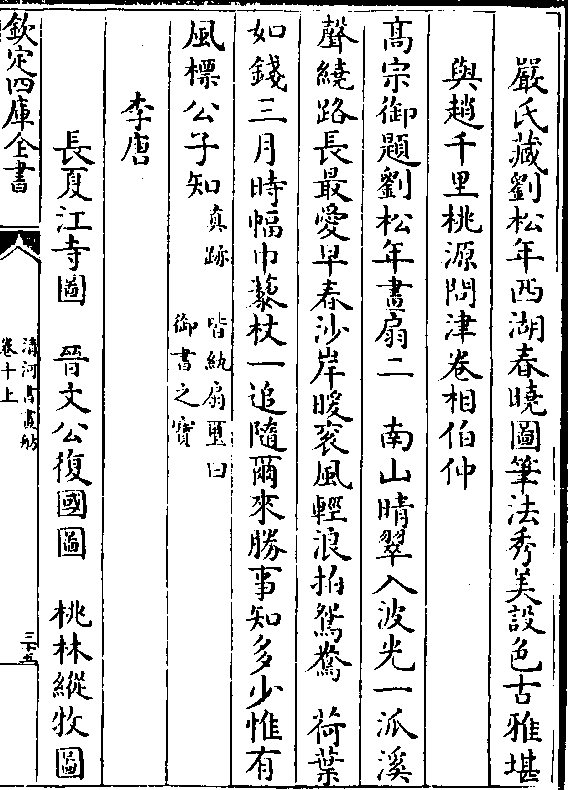 嚴氏藏劉松年西湖春曉圖筆法秀美設色古雅堪
與趙千里桃源問津卷相伯仲
髙宗御題劉松年畫扇二　南山晴翠入波光一派溪
聲繞路長最愛早春沙岸暖㐮風輕浪拍鴛鴦　荷葉
如錢三月時幅巾藜杖一追隨爾來勝事知多少惟有
風標公子知真跡　皆紈扇璽曰
御書之寳
李唐
長夏江寺圖　晉文公復國圖　桃林縱牧圖
欽定四庫全書
清河書畫舫
卷十上
三十五